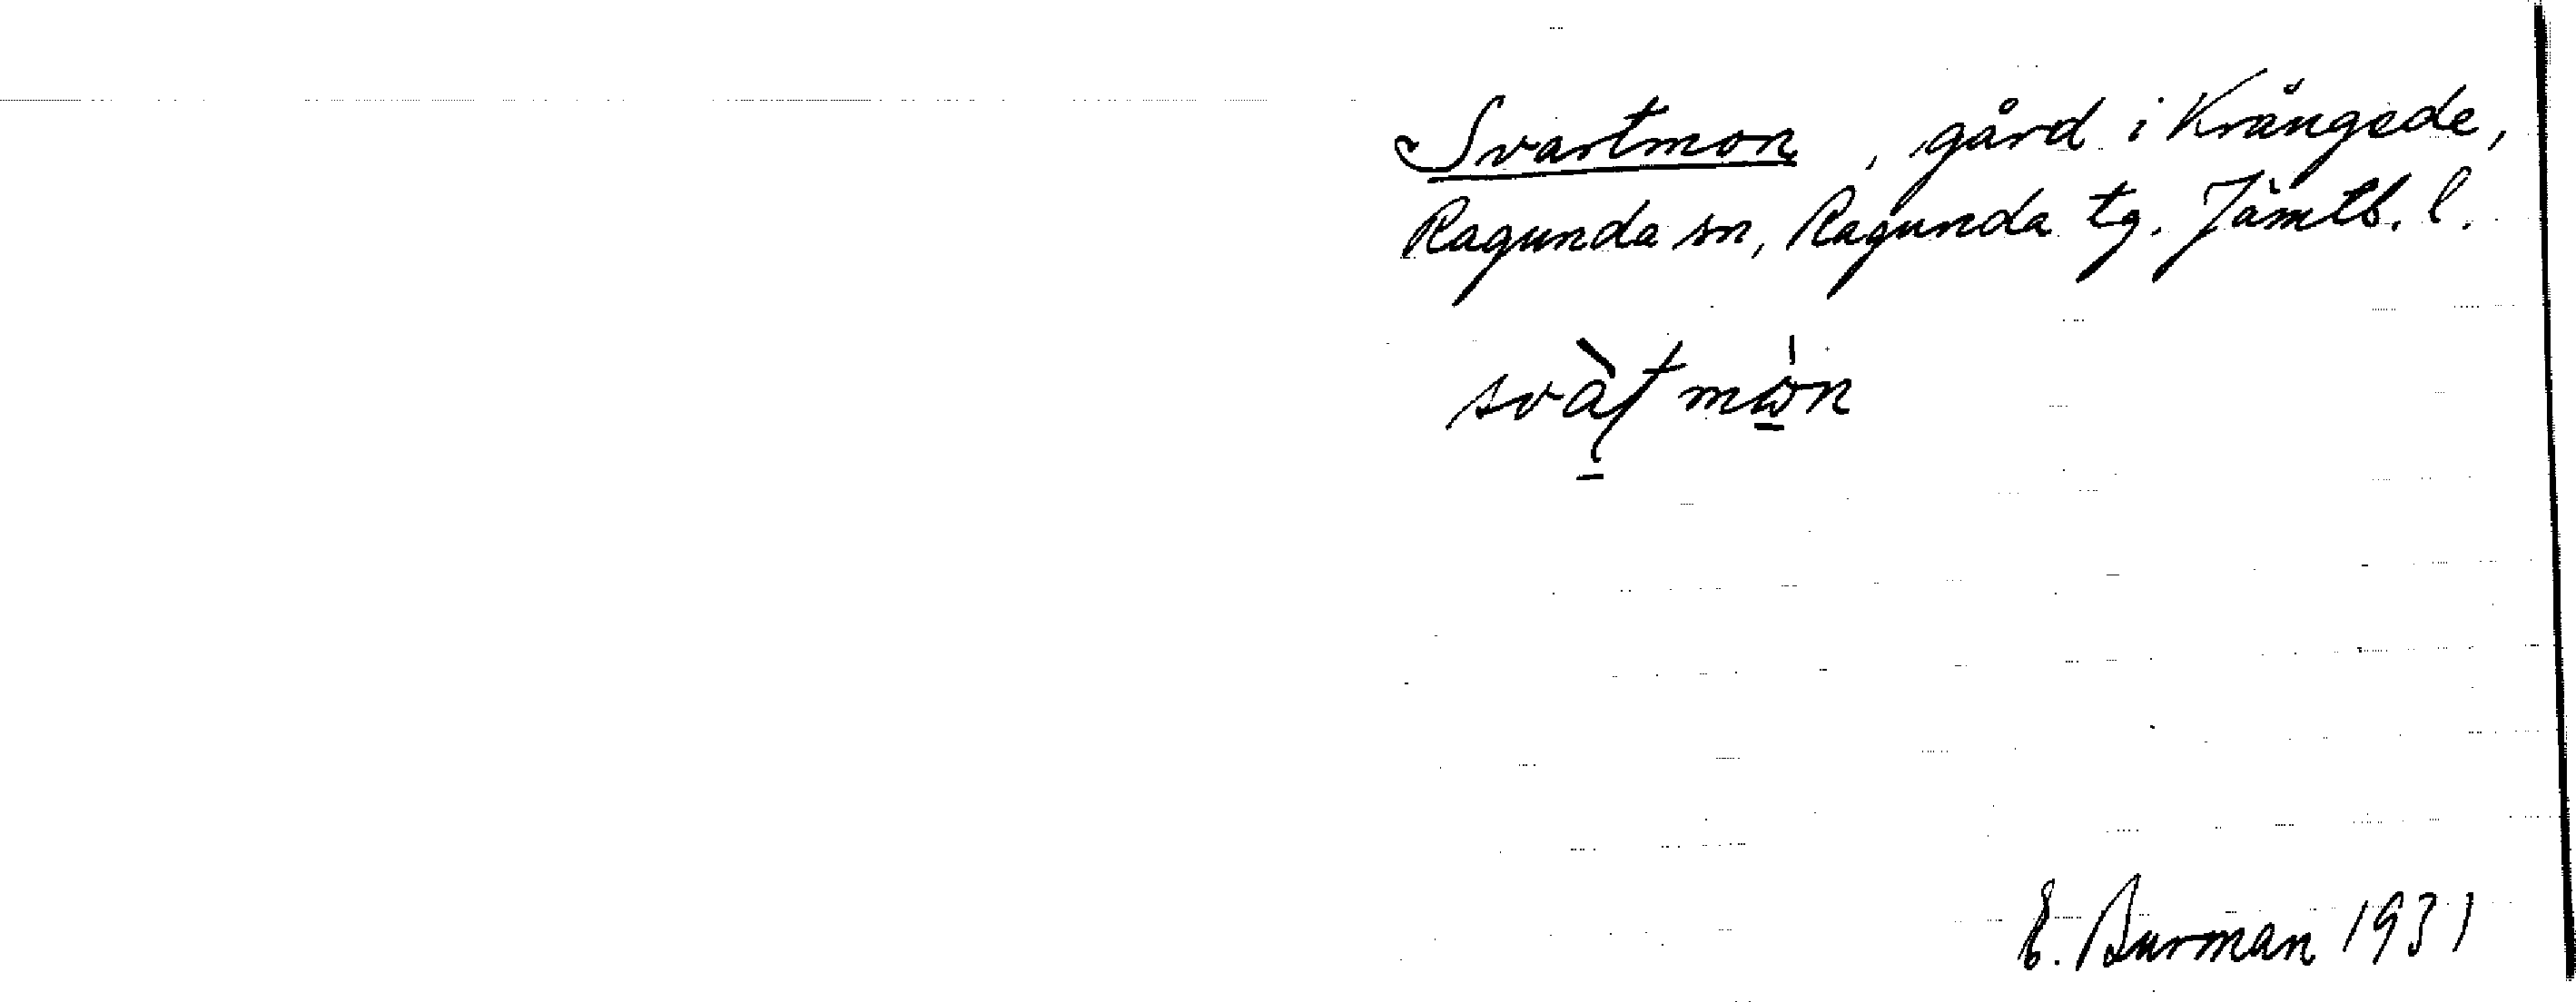 Svartmon, gård i Krångede,
Ragunda sn, Ragunda tg. Jämtl. l.
E. Burman 1931